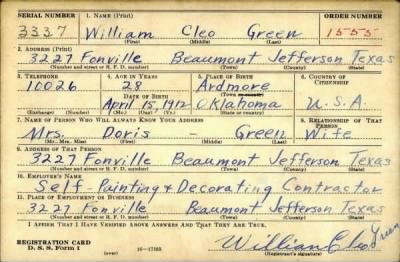 SERIAL NUMBER 1. NAME (Print) ORDER NUMBER
3337 William Cleo Green 1555
(First) (Middle) (Last)
2. ADDRESS (Print)
3227 Fonville Beaumont Jefferson Texas
(Number and street or R. F. D. number) (Town) (County) (State)
3. TELEPHONE 4. AGE IN YEARS 5. PLACE OF BIRTH 6. COUNTRY OF CITIZENSHIP
10026 28 Ardmore
DATE OF BIRTH (Town or county)
April 15, 1912 Oklahoma U.S.A.
(Exchange) (Number) (Mo.) (Day) (Yr.) (State or country)
7. NAME OF PERSON WHO WILL ALWAYS KNOW YOUR ADDRESS 8. RELATIONSHIP OF THAT PERSON
Mrs. Doris - Green Wife
(Mr., Mrs., Miss) (First) (Middle) (Last)
9. ADDRESS OF THAT PERSON
3227 Fonville Beaumont Jefferson Texas
(Number and street or R. F. D. number) (Town) (County) (State)
10. EMPLOYER'S NAME
Self - Painting & Decorating Contractor
11. PLACE OF EMPLOYMENT OR BUSINESS
3227 Fonville Beaumont Jefferson Texas
(Number and street or R. F. D. number) (Town) (County) (State)
I AFFIRM THAT I HAVE VERIFIED ABOVE ANSWERS AND THAT THEY ARE TRUE.
William Cleo Green
REGISTRATION CARD
D. S. S. Form 1 (over) 16-17105 (Registrant's signature)